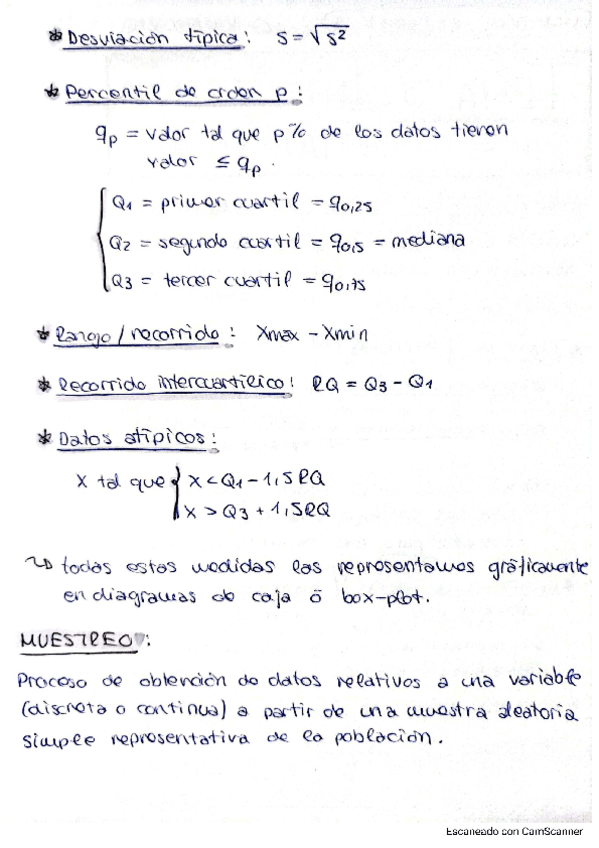 * Desviación típica: S = √s²
* Percentil de orden p:
qp = valor tal que p% de los datos tienen
valor ≤ qp.
Q1 = primer cuartil = q0,25
Q2 = segundo cuartil = q0,5 = mediana
Q3 = tercer cuartil = q0,75
* Rango / recorrido: Xmax - Xmin
* Recorrido intercuartílico: RQ = Q3 - Q1
* Datos atípicos:
X tal que { X < Q1 - 1,5RQ
X > Q3 + 1,5RQ
↝ todas estas medidas las representamos gráficamente
en diagramas de caja ó box-plot.
MUESTREO:
Proceso de obtención de datos relativos a una variable
(discreta o continua) a partir de una muestra aleatoria
simple representativa de la población.
Escaneado con CamScanner